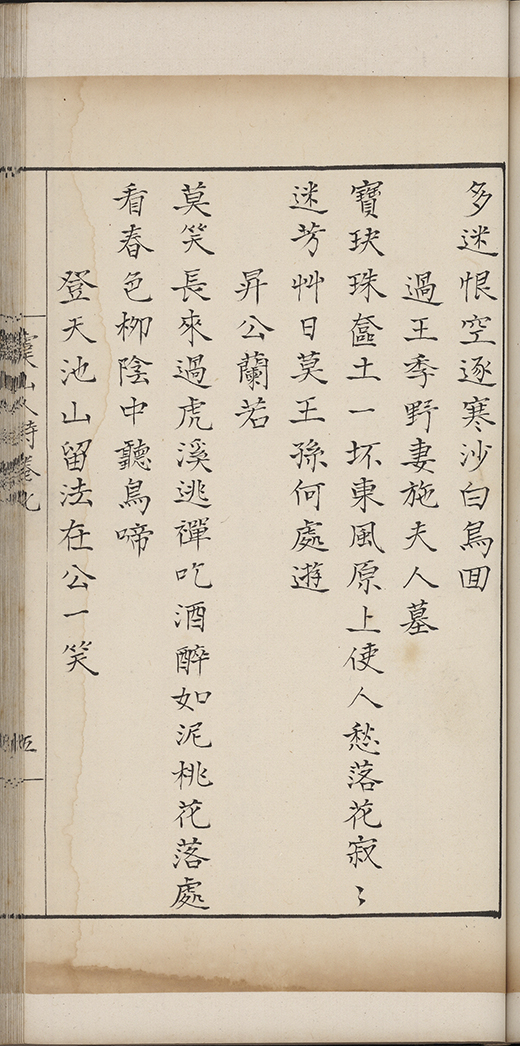 多迷恨空逐寒沙白鳥囬
過王季野妻施夫人墓
寶玦珠奩土一坏東風原上使人愁落花寂〻
迷芳艸日莫王孫何處遊
昇公蘭若
莫笑長來過虎溪逃禪吃酒醉如泥桃花落處
看春色柳陰中聽鳥啼
登天池山留法在公一笑
山人詩卷九